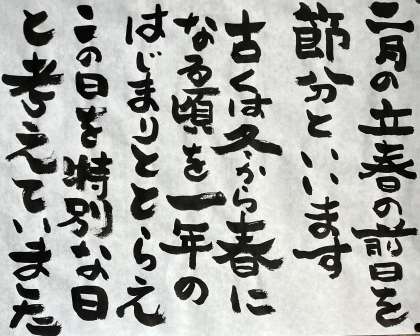 二月の立春の前日を
節分といいます
古くは冬から春に
なる頃を一年の
はじまりととらえ
この日を特別な日
と考えていました